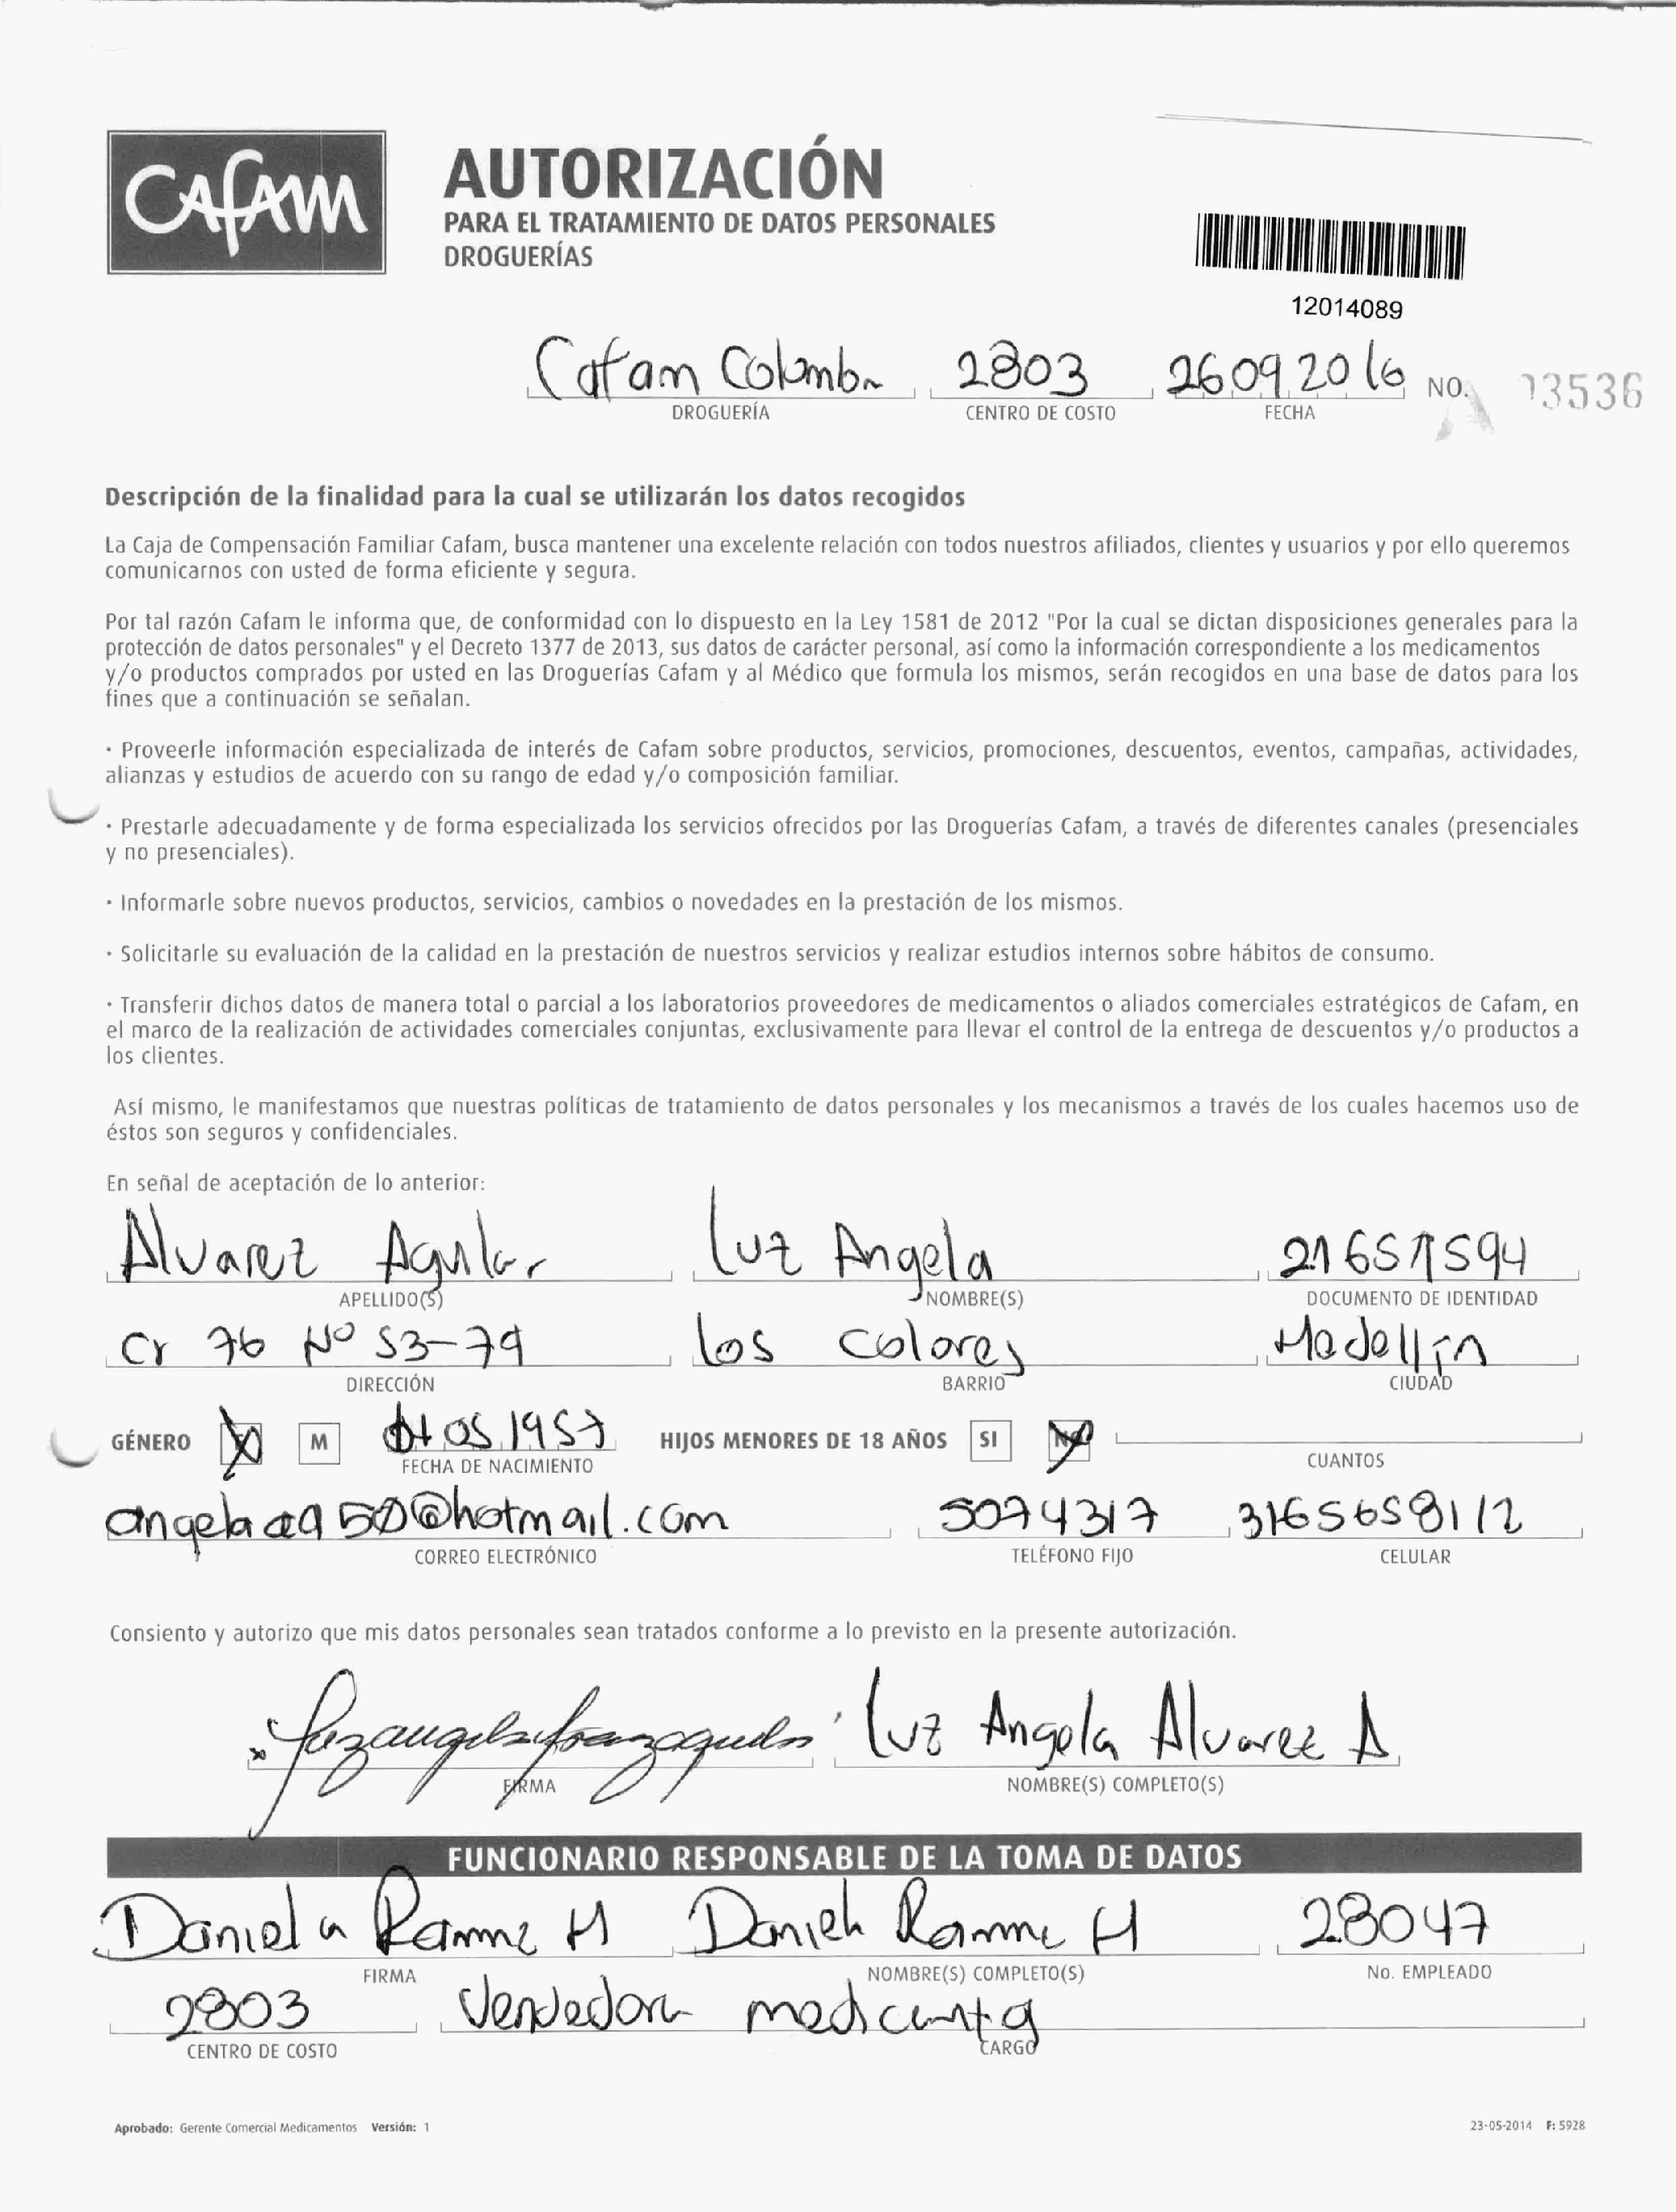 Cafam
AUTORIZACIÓN
PARA EL TRATAMIENTO DE DATOS PERSONALES
DROGUERÍAS
12014089
Cafam Colombia 2803 26 09 2016 NO. 13536
DROGUERÍA CENTRO DE COSTO FECHA A
Descripción de la finalidad para la cual se utilizarán los datos recogidos
La Caja de Compensación Familiar Cafam, busca mantener una excelente relación con todos nuestros afiliados, clientes y usuarios y por ello queremos
comunicarnos con usted de forma eficiente y segura.
Por tal razón Cafam le informa que, de conformidad con lo dispuesto en la Ley 1581 de 2012 "Por la cual se dictan disposiciones generales para la
protección de datos personales" y el Decreto 1377 de 2013, sus datos de carácter personal, así como la información correspondiente a los medicamentos
y/o productos comprados por usted en las Droguerías Cafam y al Médico que formula los mismos, serán recogidos en una base de datos para los
fines que a continuación se señalan.
· Proveerle información especializada de interés de Cafam sobre productos, servicios, promociones, descuentos, eventos, campañas, actividades,
alianzas y estudios de acuerdo con su rango de edad y/o composición familiar.
· Prestarle adecuadamente y de forma especializada los servicios ofrecidos por las Droguerías Cafam, a través de diferentes canales (presenciales
y no presenciales).
· Informarle sobre nuevos productos, servicios, cambios o novedades en la prestación de los mismos.
· Solicitarle su evaluación de la calidad en la prestación de nuestros servicios y realizar estudios internos sobre hábitos de consumo.
· Transferir dichos datos de manera total o parcial a los laboratorios proveedores de medicamentos o aliados comerciales estratégicos de Cafam, en
el marco de la realización de actividades comerciales conjuntas, exclusivamente para llevar el control de la entrega de descuentos y/o productos a
los clientes.
Así mismo, le manifestamos que nuestras políticas de tratamiento de datos personales y los mecanismos a través de los cuales hacemos uso de
éstos son seguros y confidenciales.
En señal de aceptación de lo anterior:
Alvarez Aguilar Luz Angela 21651594
APELLIDO(S) NOMBRE(S) DOCUMENTO DE IDENTIDAD
Cr 76 Nº 53-79 los colores Medellín
DIRECCIÓN BARRIO CIUDAD
GÉNERO M 05 1957 HIJOS MENORES DE 18 AÑOS SI NO
FECHA DE NACIMIENTO CUANTOS
5074317 3165658112
CORREO ELECTRÓNICO TELÉFONO FIJO CELULAR
Consiento y autorizo que mis datos personales sean tratados conforme a lo previsto en la presente autorización.
Luz Angela Alvarez A
FIRMA NOMBRE(S) COMPLETO(S)
FUNCIONARIO RESPONSABLE DE LA TOMA DE DATOS
Daniela H Daniela H 28047
FIRMA NOMBRE(S) COMPLETO(S) No. EMPLEADO
2803 Vendedora
CENTRO DE COSTO CARGO
Aprobado: Gerente Comercial Medicamentos Versión: 1 23-05-2014 F: 5928